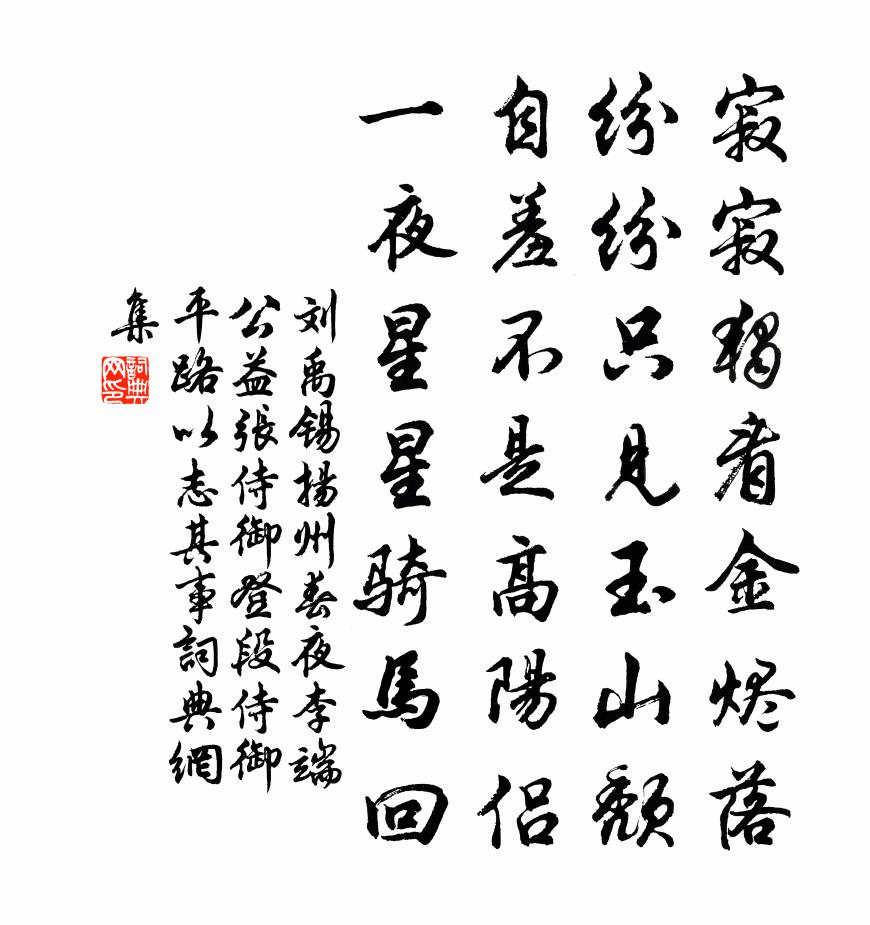 寂寂獨看金烬落
纷纷只見玉山颓
自羞不是高陽侶
一夜星星騎馬回
刘禹锡揚州春夜李端
公益張侍御登段侍御
平路以志其事詞典網
集
詞典網印